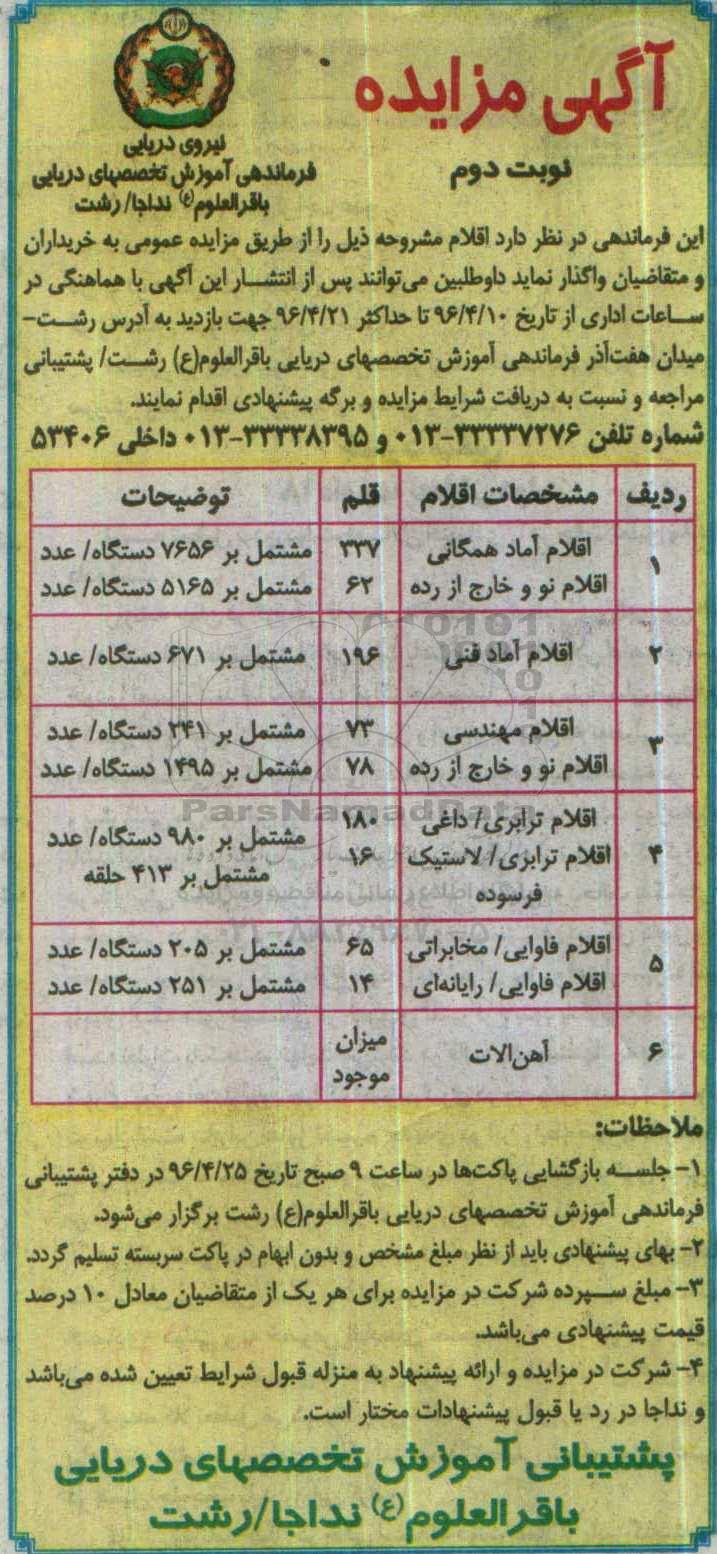 آگهی مزایده
نوبت دوم
نیروی دریایی
فرماندهی آموزش تخصصهای دریایی
باقرالعلوم(ع) نداجا/ رشت
این فرماندهی در نظر دارد اقلام مشروحه ذیل را از طریق مزایده عمومی به خریداران
و متقاضیان واگذار نماید داوطلبین می‌توانند پس از انتشار این آگهی با هماهنگی در
ساعات اداری از تاریخ ۹۶/۴/۱۰ تا حداکثر ۹۶/۴/۲۱ جهت بازدید به آدرس رشت-
میدان هفت‌آذر فرماندهی آموزش تخصصهای دریایی باقرالعلوم(ع) رشت/ پشتیبانی
مراجعه و نسبت به دریافت شرایط مزایده و برگه پیشنهادی اقدام نمایند.
شماره تلفن ۳۳۳۳۷۲۷۶-۰۱۳ و ۳۳۳۳۸۳۹۵-۰۱۳ داخلی ۵۳۴۰۶
ردیف مشخصات اقلام قلم توضیحات
۱ اقلام آماد همگانی ۳۳۷ مشتمل بر ۷۶۵۶ دستگاه/ عدد
اقلام نو و خارج از رده ۶۲ مشتمل بر ۵۱۶۵ دستگاه/ عدد
۲ اقلام آماد فنی ۱۹۶ مشتمل بر ۶۷۱ دستگاه/ عدد
۳ اقلام مهندسی ۷۳ مشتمل بر ۲۴۱ دستگاه/ عدد
اقلام نو و خارج از رده ۷۸ مشتمل بر ۱۴۹۵ دستگاه/ عدد
ParsNamadData
۴ اقلام ترابری/ داغی ۱۸۰ مشتمل بر ۹۸۰ دستگاه/ عدد
اقلام ترابری/ لاستیک ۱۶ مشتمل بر ۴۱۳ حلقه
فرسوده
۵ اقلام فاوایی/ مخابراتی ۶۵ مشتمل بر ۲۰۵ دستگاه/ عدد
اقلام فاوایی/ رایانه‌ای ۱۴ مشتمل بر ۲۵۱ دستگاه/ عدد
۶ آهن‌آلات میزان
موجود
ملاحظات:
۱- جلسه بازگشایی پاکت‌ها در ساعت ۹ صبح تاریخ ۹۶/۴/۲۵ در دفتر پشتیبانی
فرماندهی آموزش تخصصهای دریایی باقرالعلوم(ع) رشت برگزار می‌شود.
۲- بهای پیشنهادی باید از نظر مبلغ مشخص و بدون ابهام در پاکت سربسته تسلیم گردد.
۳- مبلغ سپرده شرکت در مزایده برای هر یک از متقاضیان معادل ۱۰ درصد
قیمت پیشنهادی می‌باشد.
۴- شرکت در مزایده و ارائه پیشنهاد به منزله قبول شرایط تعیین شده می‌باشد
و نداجا در رد یا قبول پیشنهادات مختار است.
پشتیبانی آموزش تخصصهای دریایی
باقرالعلوم(ع) نداجا/رشت